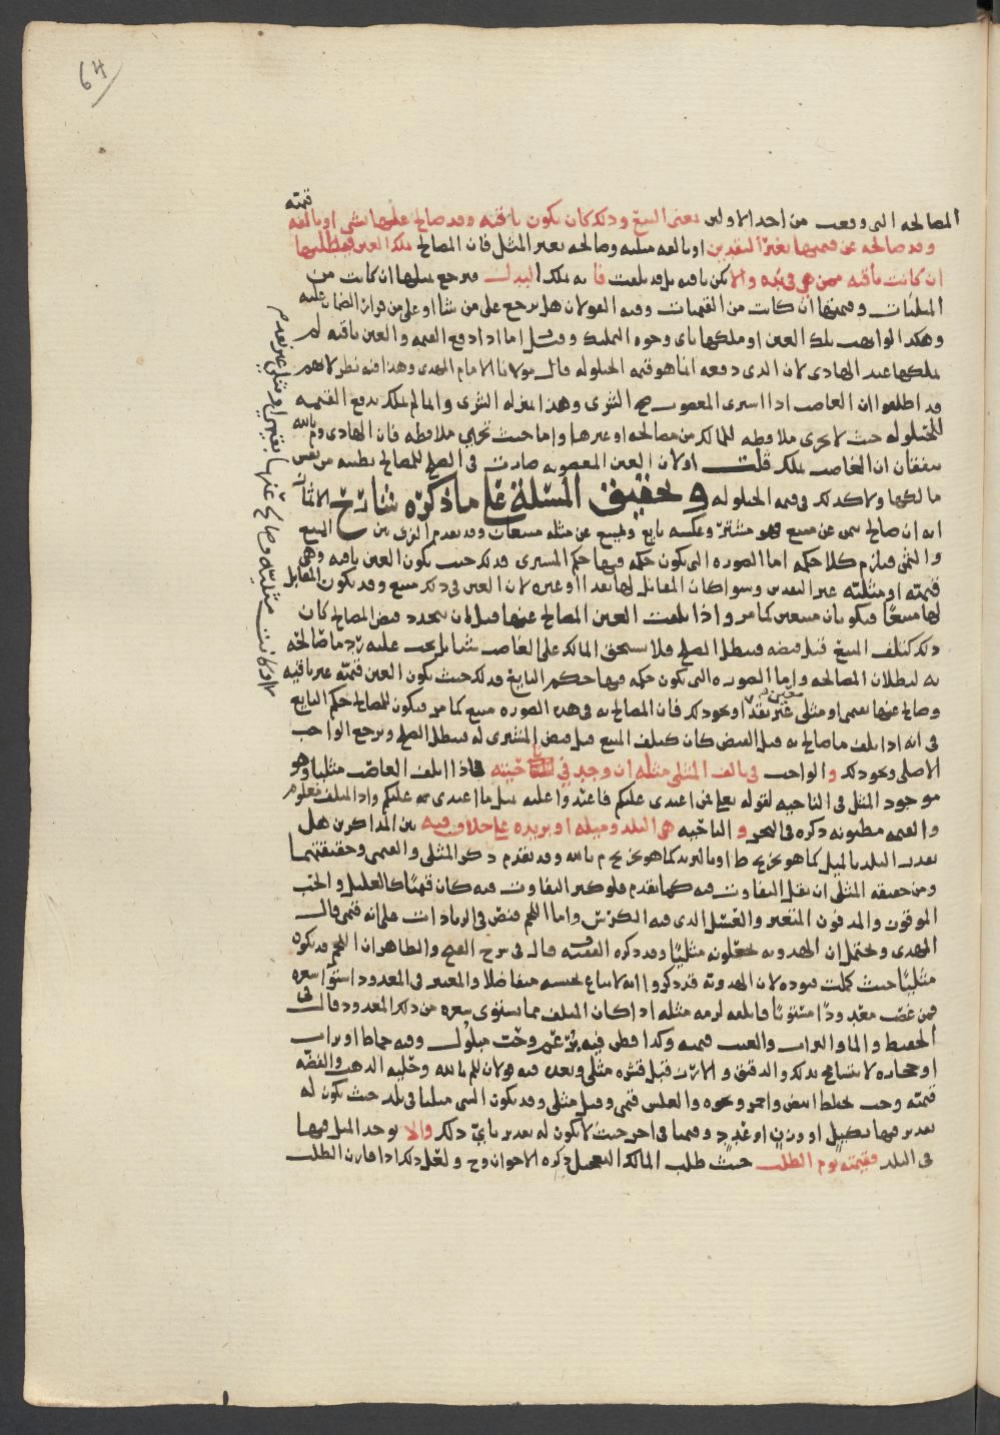 64
قيمته
المصالحه التي وقعت من احد الاولين بمعنى البيع وذلك كان يكون باقيه وقد صالح عليها بشي او تالفه
وقد صالحه عن قيمتها بغير النقدين او تالفه مثليه وصالحه بغير المثل فان المصالح ملك العين فيطلبها
ان كانت باقيه ممن هي في يده والا تكن باقيه بل قد تلفت فانه ملك البدل فيرجع بمثلها ان كانت من
المثليات وقيمتها ان كانت من القيميات وفيه القولان هل يرجع على من شا او على من قرار الضمان عليه
وهكذا لو اتهب تلك العين او ملكها باي وجوه التمليك وقيل اما اذا دفع القيمه والعين باقيه لم
يملكها عند الهادي لان الذي دفعه انما هو قيمه الحيلوله قال مولانا الامام المهدي وهذا فيه نظر لانهم
قد اطلقوا ان الغاصب اذا اشترى المغصوب صح الشرى وهذا بمنزله الشرى وانما لم يملك بدفع القيمه
للحيلوله حيث لا يجري ملافظه للمالك من مصالحه او غيرها واما حيث تجري ملافظه فان الهادي وم بالله
يتفقان ان الغاصب يملك قلت اولان العين المغصوبه صارت في الصلح للمصالح بطيبه من نفس
مالكها ولا كذلك في قيمه الحيلوله وتحقيق المسئلة على ما ذكره شارح الاثمار
انه ان صالح بثمن عن مبيع فهو مشتر وعكسه بايع وبمبيع عن مثله مبيعان وقد تقدم الفرق بين المبيع
والثمن فيلزم كلا حكمه اما الصوره التي يكون حكمه فيها حكم المشتري فذلك حيث يكون العين باقيه وهي
قيميه او مثليه غير النقدين وسوا كان المقابل لها نقدا او غيره لان العين في ذلك مبيع وقد يكون المقابل
لها مبيعا فيكونان مبيعين كما مر واذا تلفت العين المصالح عنها قبل ان يتجدد قبض المصالح كان
ذلك كتلف المبيع قبل قبضه فيبطل الصلح فلا يستحق المالك على الغاصب شيا بل يجب عليه رد ما صالحه
به لبطلان المصالحه واما الصوره التي يكون حكمه فيها حكم البايع فذلك حيث يكون العين قيميه غير باقيه
وصالح عنها بقيمي او مثلي غير نقد معين او نحو ذلك فان المصالح به في هذه الصوره مبيع كما مر فيكون للمصالح حكم البايع
في انه اذا تلف ما صالح به قبل القبض كان كتلف المبيع قبل قبض المشتري له فيبطل الصلح ويرجع الواجب
الاصلي ونحو ذلك والواجب في تالف المثلي مثله ان وجد في ناحيته فاذا اتلف الغاصب مثليا وهو
موجود المثل في الناحيه لقوله تعالى فمن اعتدى عليكم فاعتدوا عليه بمثل ما اعتدى عليكم واذ المثل معلوم
والقيمه مظنونه ذكره في البحر والناحيه هي البلد وميله او بريده على خلاف فيه بين المذاكرين هل
يقدر البلد بالميل كما هو تخريج ط او بالبريد كما هو تخريج م بالله وقد تقدم ذكر المثلي والقيمي وحقيقتهما
ومن حقيقه المثلي ان يقل التفاوت فيه كما تقدم فلو كثر التفاوت فيه كان قيميا كالقليل والحب
المدفون المتغير والعسل الذي فيه الكرس واما اللحم فنص في الزيادات على انه قيمي قال
المهدي ويحتمل ان الهدويه يجعلونه مثليا وقد ذكره الفقيه ف قال في شرح الفتح والظاهر ان اللحم قد يكون
مثليا حيث كملت قيوده لان الهدويه قد ذكروا انه لا يباع بجنسه متفاضلا والمعتبر في المعدود استوا سعره
فمن غصب معدودا مستويا فاتلفه لزمه مثله اذا كان المتلف مما يستوي سعره من ذلك المعدود قال في
الحفيظ والما والتراب والعنب قيميه وكذا قطن فيه بزر غير وحب مبلول وفيه حماط او تراب
او حجاره لا يتسامح بذلك والدقيق والارز قبل قشره مثلي وبعده فيه قولان للم بالله وحليه الذهب والفضه
قيميه وحب خلط ابيض واحمر ونحوه والعلس قيمي وقيل مثلي وقد يكون الشي مثليا في بلد حيث يكون له
تقدير فيها بكيل او وزن او عدد وقيميا في اخر حيث لا يكون له تقدير باي ذلك والا يوجد المثل فيها
في البلد فقيمته يوم الطلب حيث طلب المالك التعجيل ذكره الاخوان وح ولعل ذلك اذا قارن الطلب
او كانت مثليه وصالح عنها بقيمي او مثلي غير نقد م